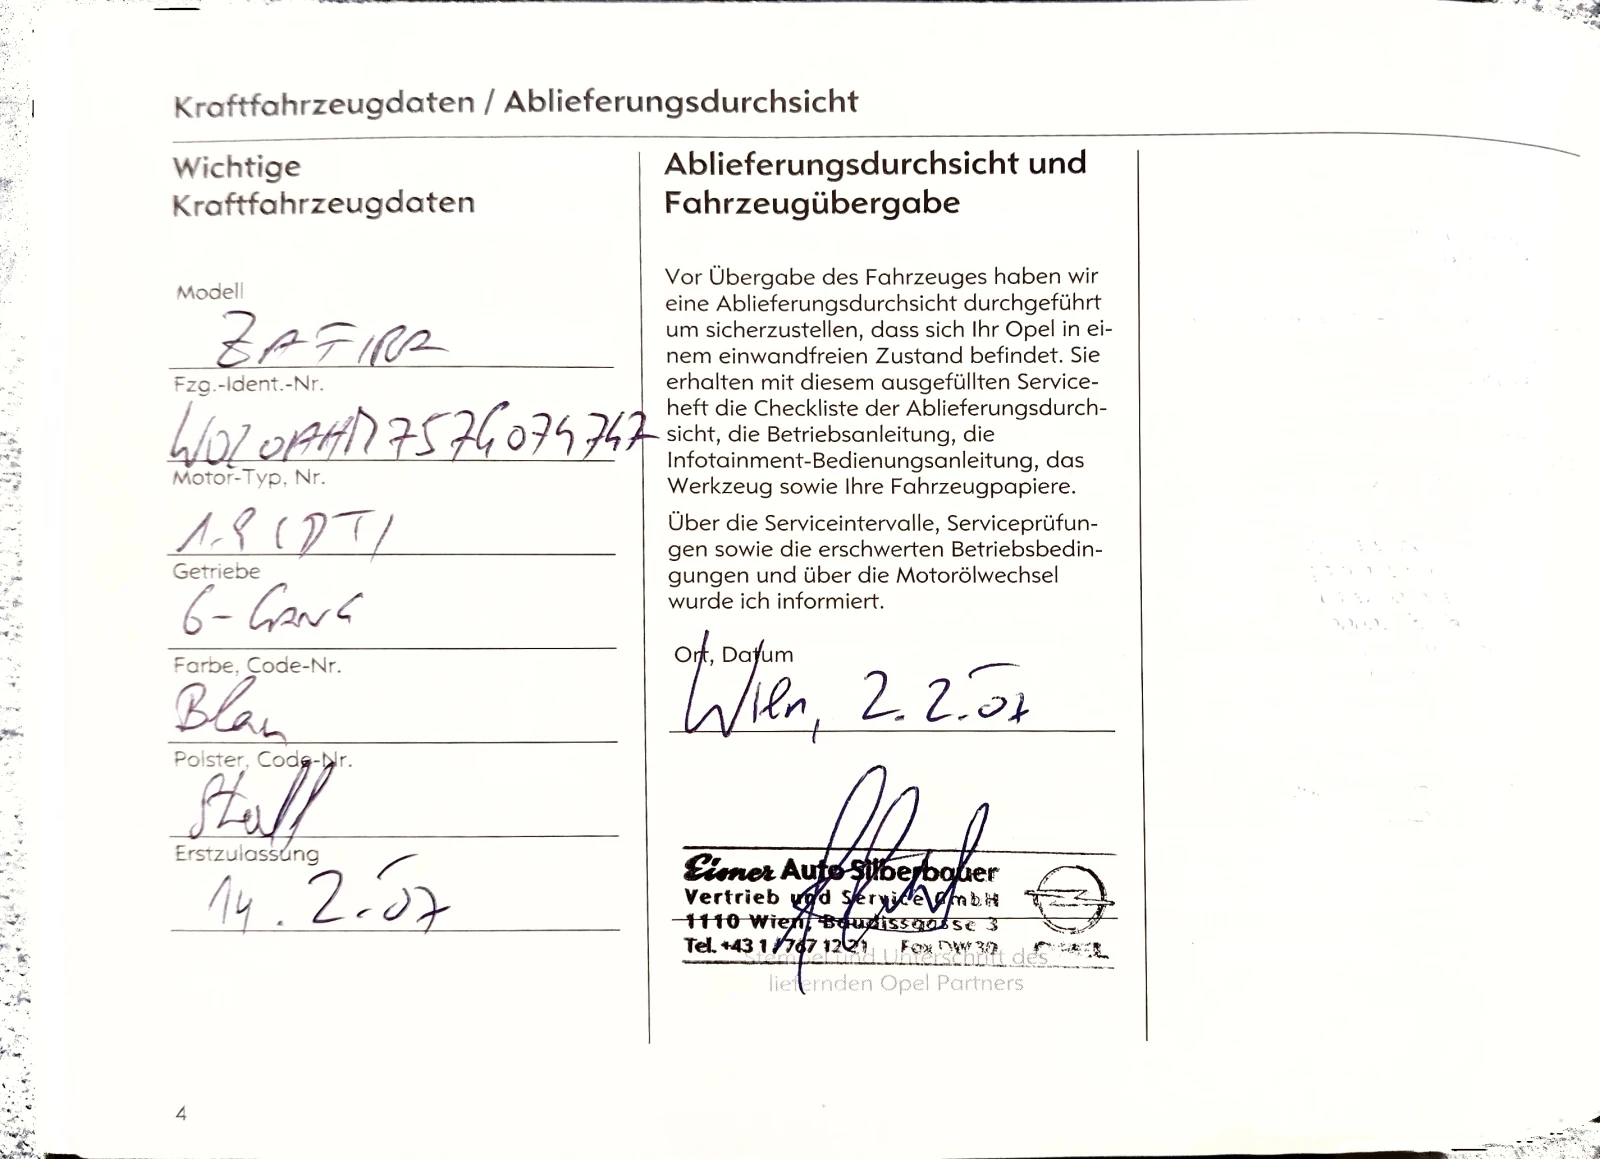 Kraftfahrzeugdaten / Ablieferungsdurchsicht
Wichtige
Kraftfahrzeugdaten
Modell
ZAFIRA
Fzg.-Ident.-Nr.
W0L0AHM757G074747
Motor-Typ, Nr.
1.9 (DT)
Getriebe
6-GANG
Farbe, Code-Nr.
Blau
Polster, Code-Nr.
Stoff
Erstzulassung
14. 2. 07
Ablieferungsdurchsicht und
Fahrzeugübergabe
Vor Übergabe des Fahrzeuges haben wir
eine Ablieferungsdurchsicht durchgeführt
um sicherzustellen, dass sich Ihr Opel in ei-
nem einwandfreien Zustand befindet. Sie
erhalten mit diesem ausgefüllten Service-
heft die Checkliste der Ablieferungsdurch-
sicht, die Betriebsanleitung, die
Infotainment-Bedienungsanleitung, das
Werkzeug sowie Ihre Fahrzeugpapiere.
Über die Serviceintervalle, Serviceprüfun-
gen sowie die erschwerten Betriebsbedin-
gungen und über die Motorölwechsel
wurde ich informiert.
Ort, Datum
Wien, 2. 2. 07
Eimer Auto Silberbauer
Vertrieb und Service GmbH
1110 Wien, Baudissgasse 3
Tel. +43 1 / 767 12 21 Fax DW 30 OPEL
Stempel und Unterschrift des
liefernden Opel Partners
4